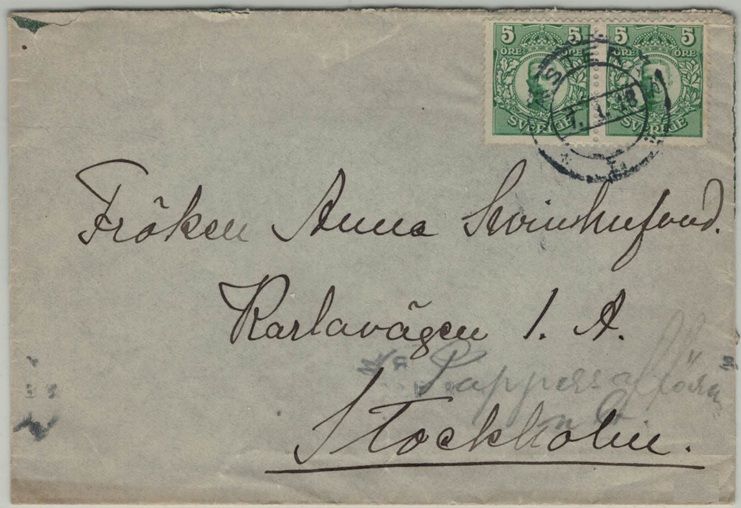 5 5 5 5
ÖRE ÖRE ÖRE ÖRE
7. 1. 18
SVERIGE SVERIGE
Fröken Anna Svinhufvud.
Karlavägen 1. A.
Stockholm.